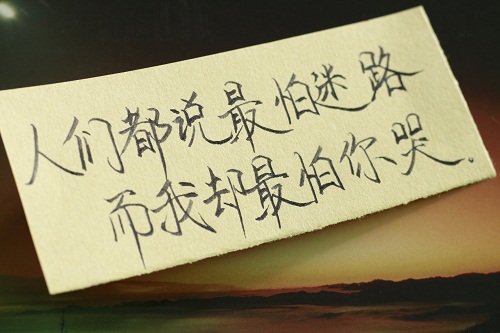 人们都说最怕迷路
而我却最怕你哭.